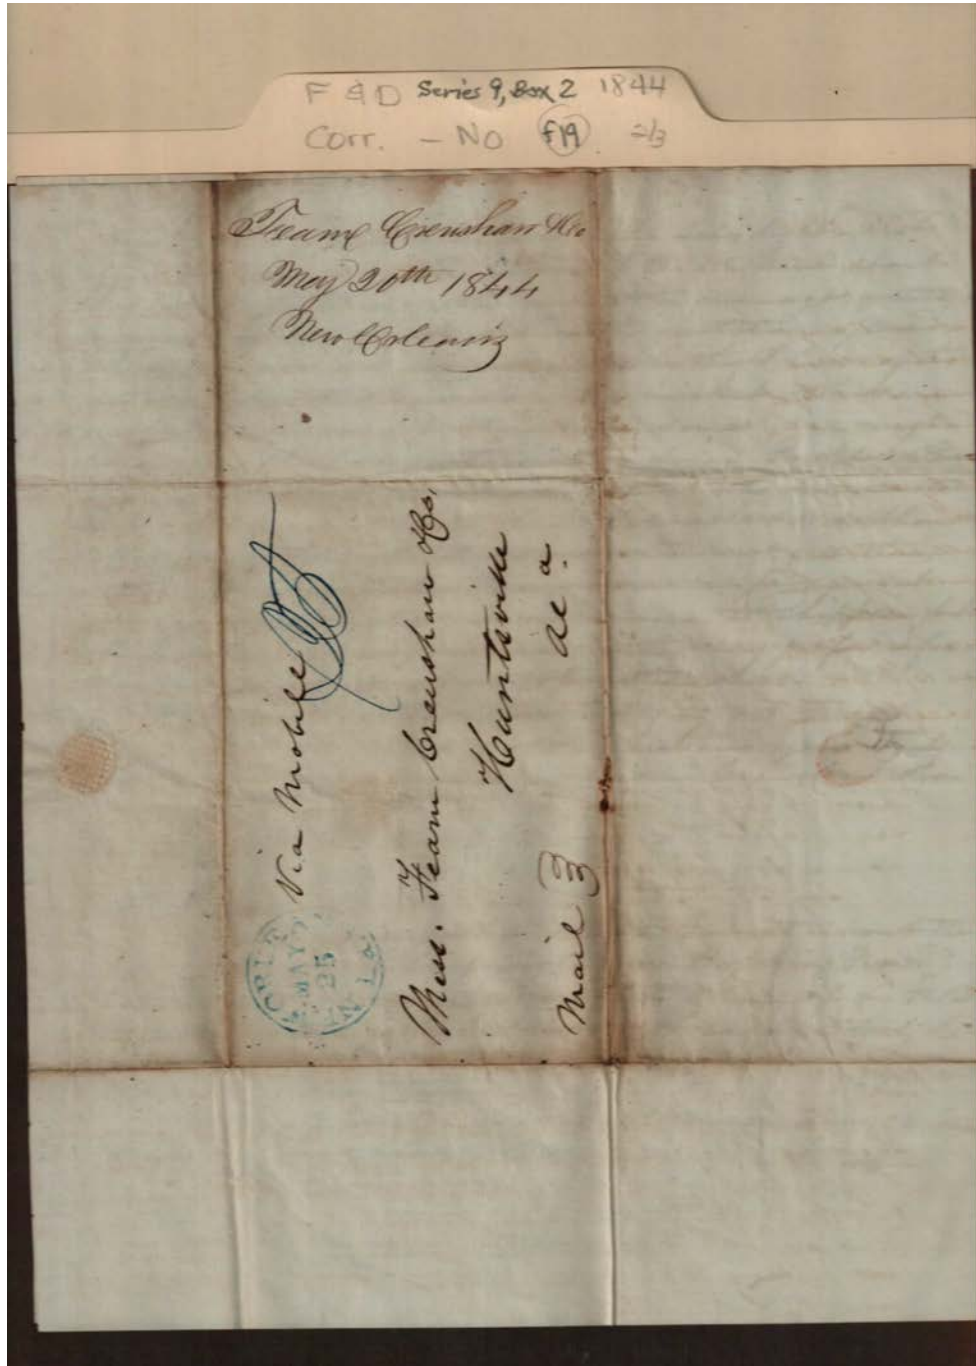 F & D Series 9, Box 2 1844
Corr. - NO f19 2/3
Fearn Crenshaw & Co
May 20th 1844
New Orleans
Via Mobile
MAY
25
La
Mess. Fearn Crenshaw & Co,
Huntsville
Al a.
Mail 3